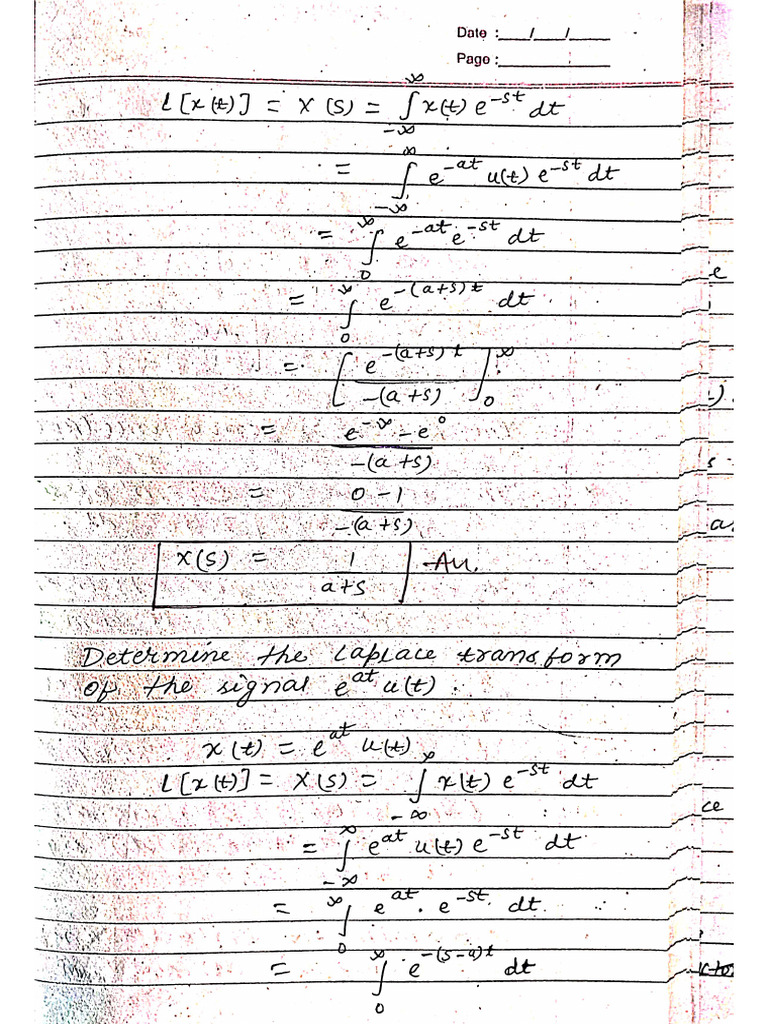 Date :___/___/___
Page :___________
L[x(t)] = X(S) = ∫_{-∞}^{∞} x(t) e^{-st} dt
= ∫_{-∞}^{∞} e^{-at} u(t) e^{-st} dt
= ∫_{0}^{∞} e^{-at} e^{-st} dt
= ∫_{0}^{∞} e^{-(a+s)t} dt
= [e^{-(a+s)t} / -(a+s)]_{0}^{∞}
= (e^{-∞} - e^{0}) / -(a+s)
= (0-1) / -(a+s)
X(S) = 1 / (a+s) An.
Determine the Laplace transform
of the signal e^{at} u(t).
x(t) = e^{at} u(t)
L[x(t)] = X(S) = ∫_{-∞}^{∞} x(t) e^{-st} dt
= ∫_{-∞}^{∞} e^{at} u(t) e^{-st} dt
= ∫_{0}^{∞} e^{at} . e^{-st} dt
= ∫_{0}^{∞} e^{-(s-a)t} dt